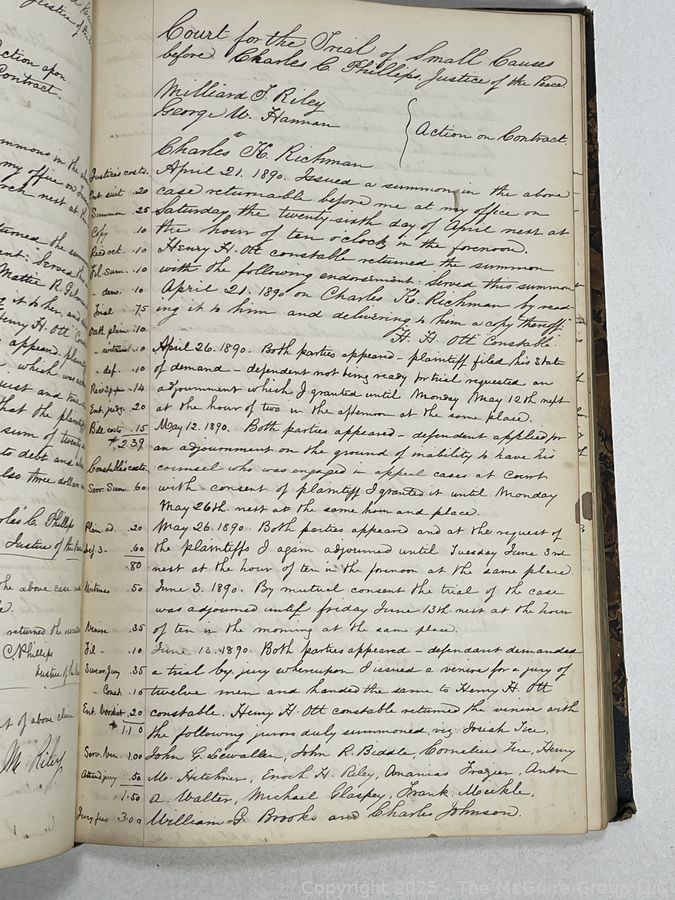 Court for the Trial of Small Causes
before Charles C. Phillips, Justice of the Peace
Milliard T. Riley
George W. Hannan
Action on Contract.
v
Charles H. Richman
April 21. 1890. Issued a summon in the above
case returnable before me at my office on
Saturday the twenty-sixth day of April next at
the hour of ten o'clock in the forenoon.
Henry H. Ott constable returned the summon
with the following endorsement: Served this summon
April 21. 1890 on Charles H. Richman by read-
ing it to him and delivering to him a copy thereof.
H. H. Ott Constable
April 26. 1890. Both parties appeared - plaintiff filed his state
of demand - defendant not being ready for trial requested an
adjournment which I granted until Monday May 12th next
at the hour of two in the afternoon at the same place.
May 12. 1890. Both parties appeared - defendant applied for
an adjournment on the ground of inability to have his
counsel who was engaged in appeal cases at Court
with consent of plaintiff I granted it until Monday
May 26th next at the same hour and place.
May 26. 1890. Both parties appeared and at the request of
the plaintiffs I again adjourned until Tuesday June 3rd
next at the hour of ten in the forenoon at the same place.
June 3. 1890. By mutual consent the trial of the case
was adjourned until friday June 13th next at the hour
of ten in the morning at the same place.
June 13. 1890. Both parties appeared - defendant demanded
a trial by jury whereupon I issued a venire for a jury of
twelve men and handed the same to Henry H. Ott
constable. Henry H. Ott constable returned the venire with
the following jurors duly summoned, viz: Josiah Ice,
John G. Sewallen, John R. Biddle, Cornelius Ice, Henry
M. Hitchner, Enoch H. Riley, Ananias Frazier, Anton
A. Walter, Michael Glaspey, Frank Meckle,
William G. Brooks and Charles Johnson.
Justice's costs.
Ent. suit .20
Summon 25
Copy .10
Fil. Sum. .10
" dem. .10
Trial .75
Oath plain .10
" witness .10
" def. .10
.14
Ent. judg. .20
Bill costs .15
$2.39
Constable's costs
Serv. Sum. 60
Plain. ad. .20
Def. 3. .60
.80
Witness .50
Venire .35
Fil. " .10
Swear Jury .35
" Const. .10
Ent. Verdict .20
$1.10
Serv. Ven. 1.00
Attend jury .50
1.50
Jury fees 3.00
ction upon
Contract.
my office on
C. Phillips
of above claim
M. Riley
Copyright 2025 - The McGuire Group LLC